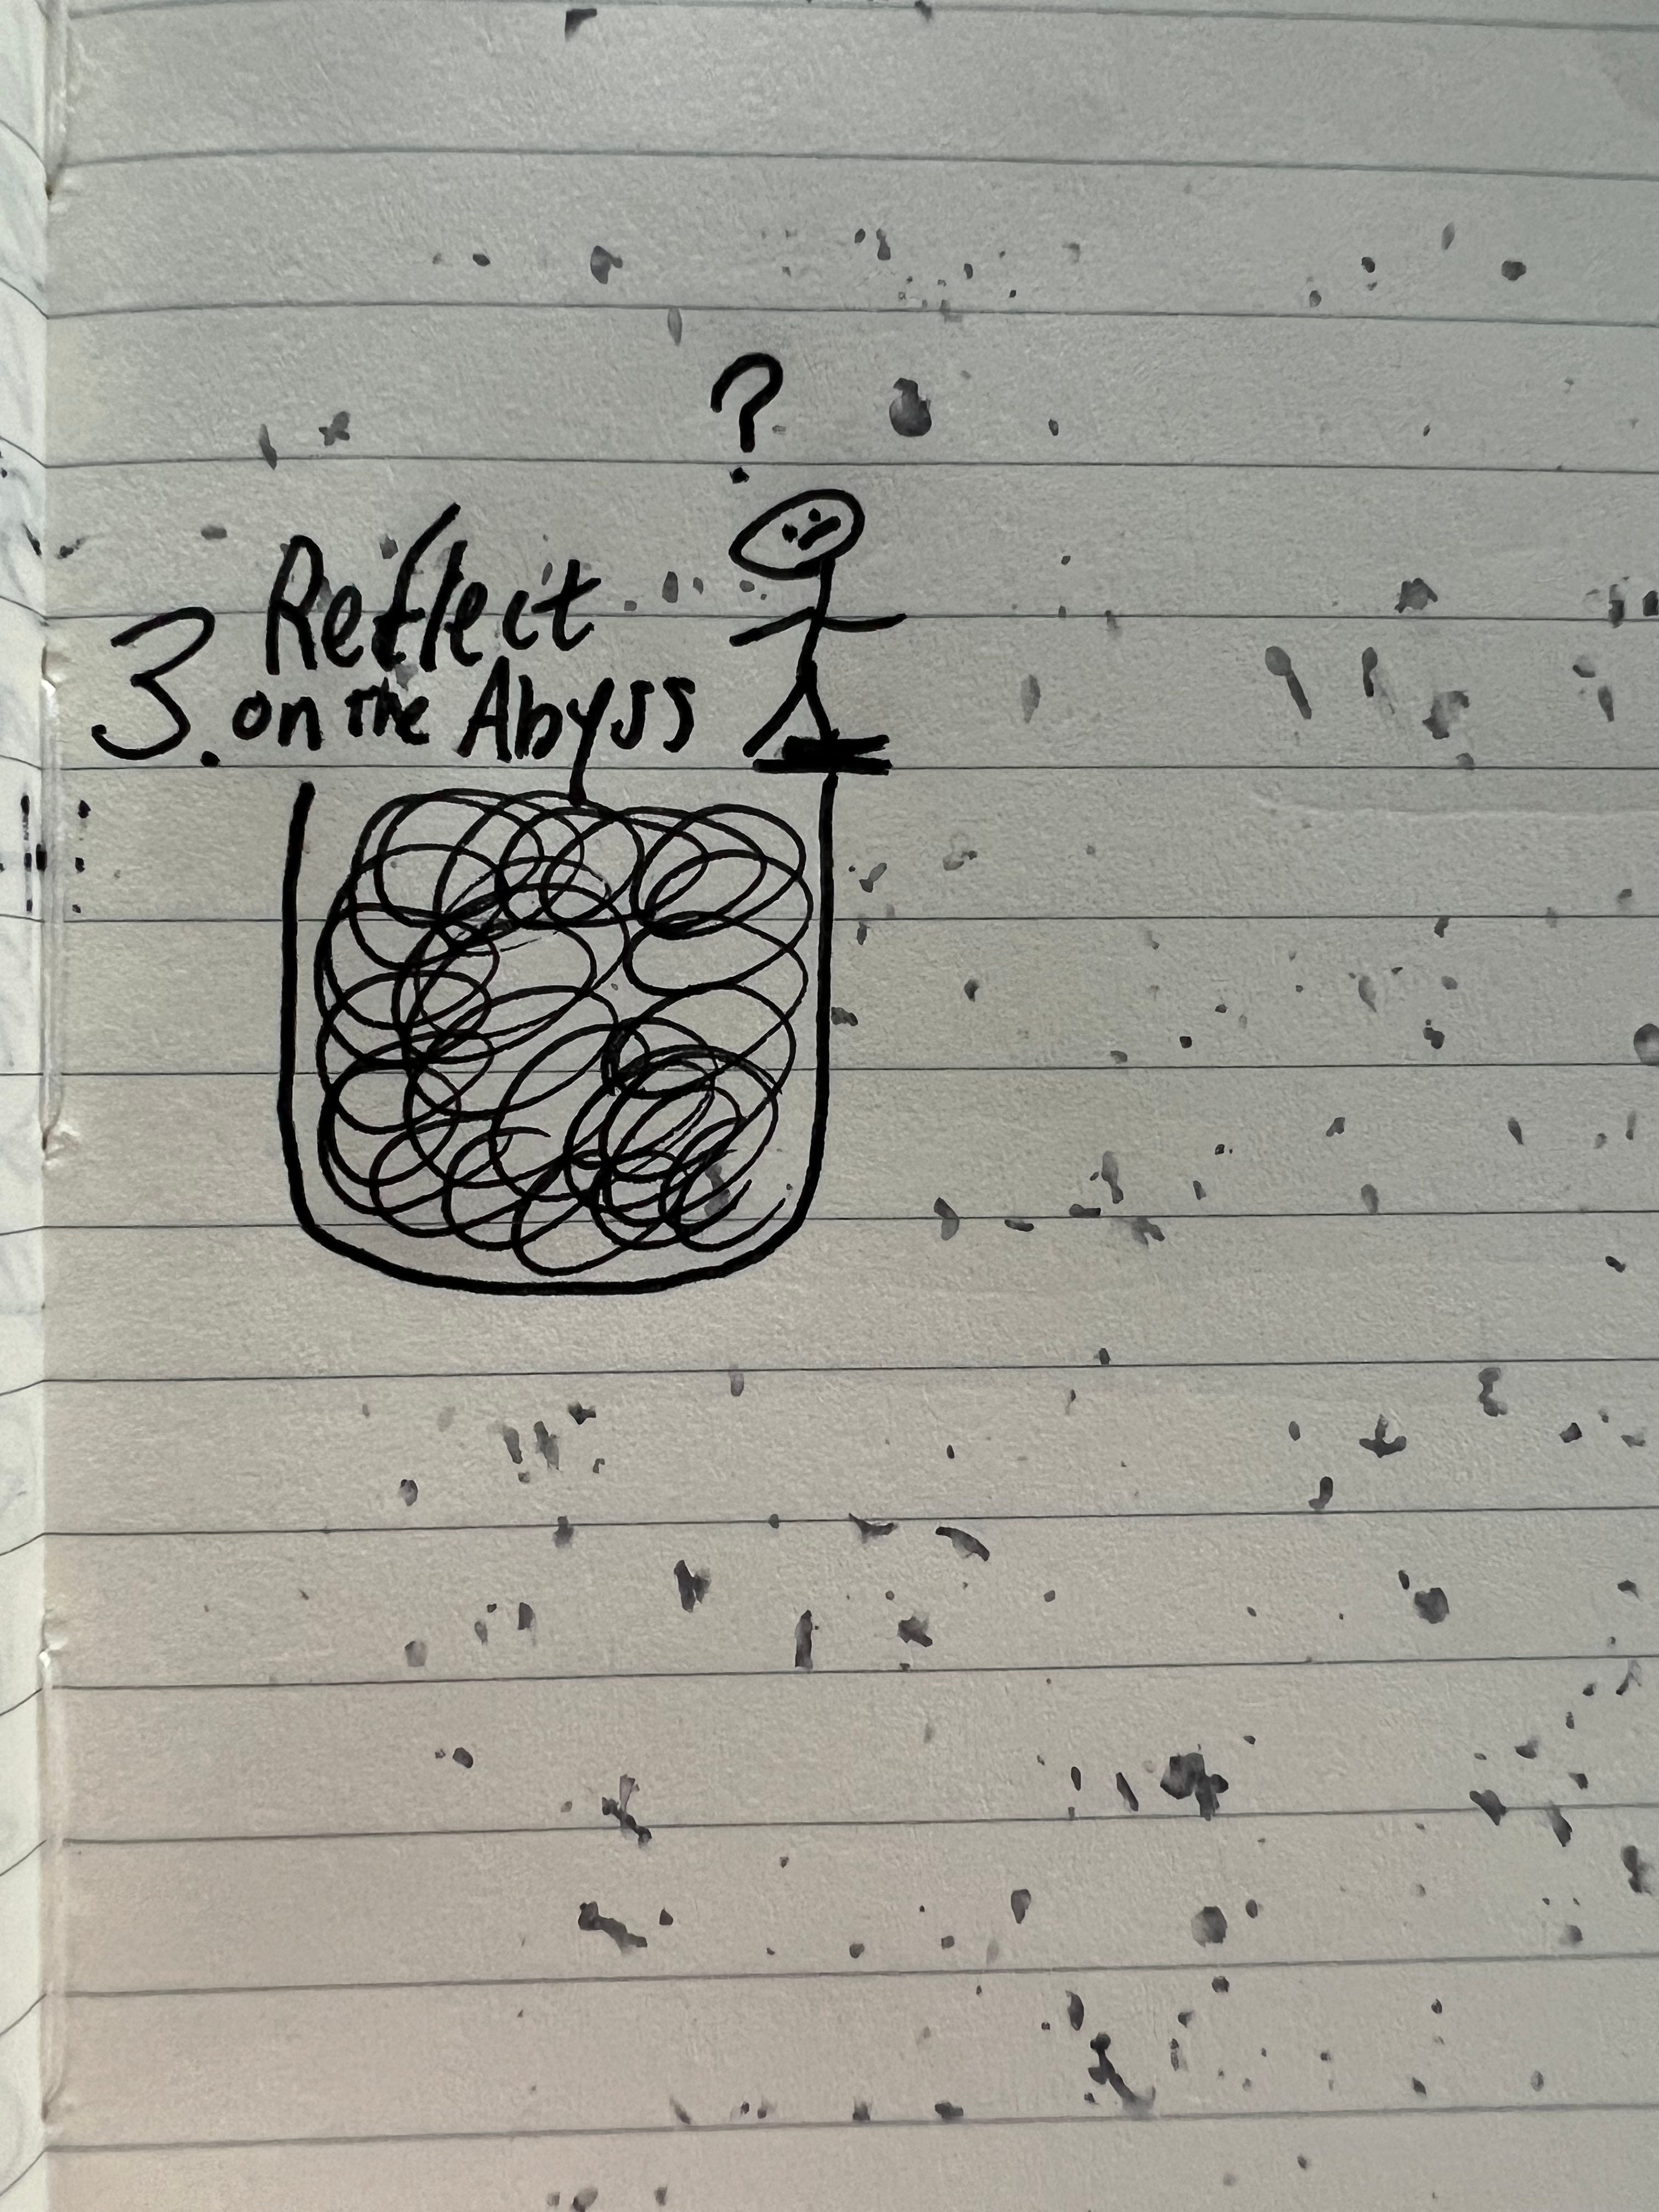 ?
Reflect
3. on the Abyss